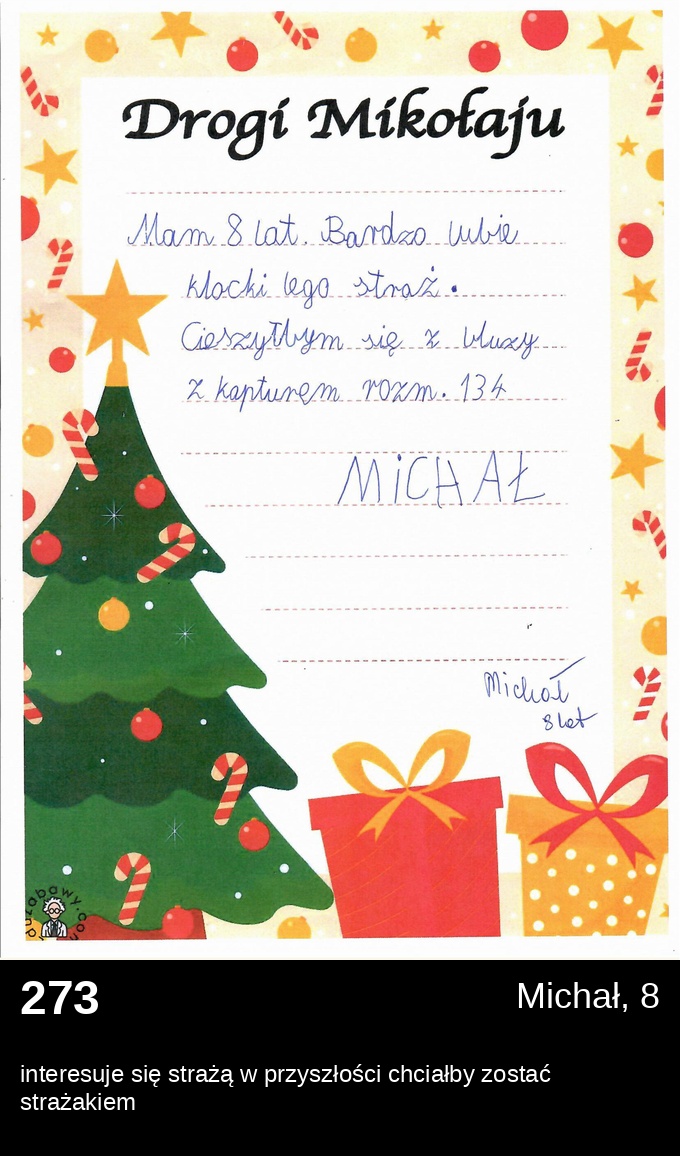 Drogi Mikołaju
Mam 8 lat. Bardzo lubię
klocki lego straż.
Cieszyłbym się z bluzy
z kapturem rozm. 134
MiCHAŁ
Michał
8 lat
273
Michał, 8
interesuje się strażą w przyszłości chciałby zostać
strażakiem